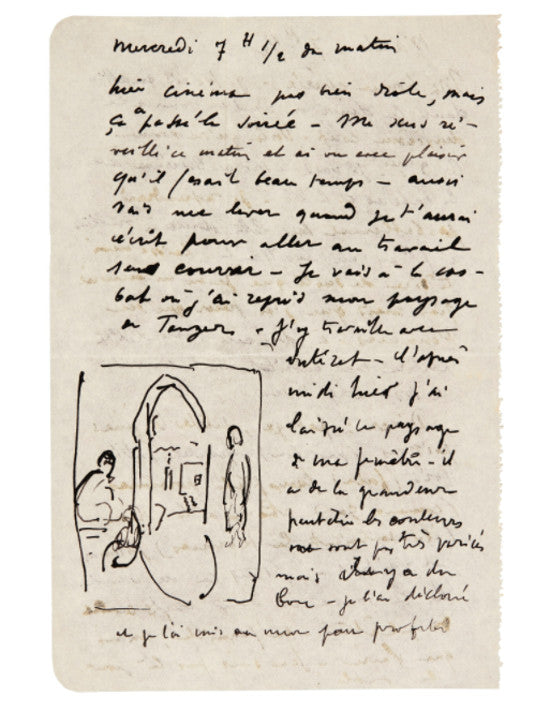 Mercredi 7 H 1/2 du matin
hier cinéma pas bien drôle, mais
ça a passé la soirée - Me suis ré-
veillé ce matin et ai vu avec plaisir
qu'il faisait beau temps - aussi
vais me lever quand je t'aurai
écrit pour aller au travail
sans courir - Je vais à la cas-
bah où j'ai repris mon paysage
de Tanger - J'y travaille avec
intérêt - L'après
midi hier j'ai
laissé le paysage
de ma fenêtre - il
a de la grandeur
peut être les couleurs
ne sont pas très variées
mais il y a du
bon - je l'ai décloué
et je l'ai mis au mur pour profiter